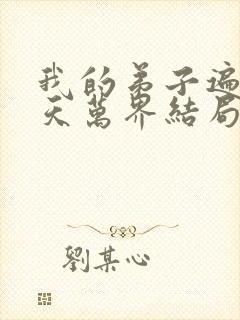 我的弟子遍
天萬界結局
劉某心